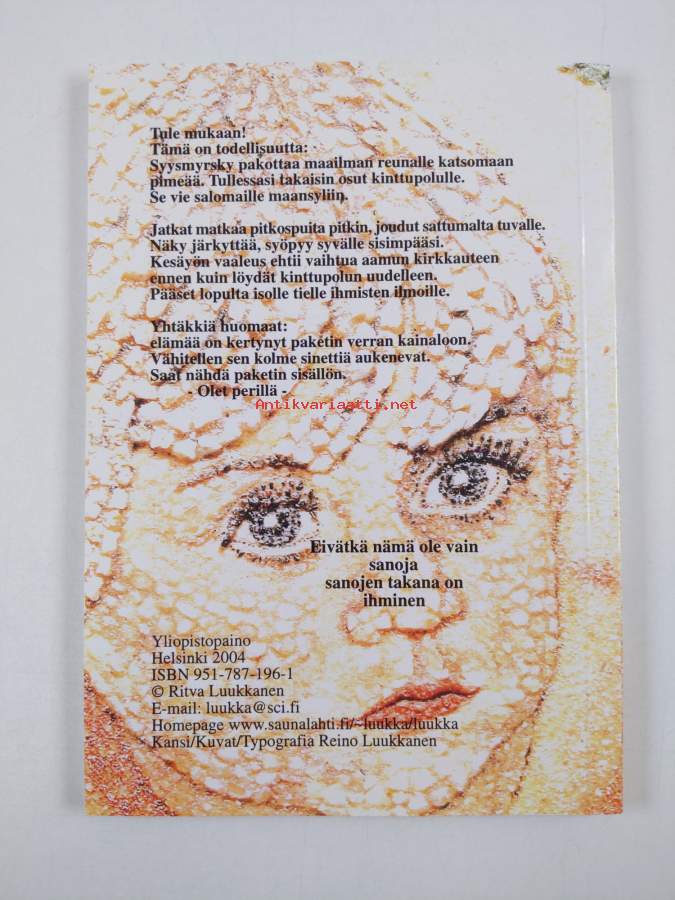 Tule mukaan!
Tämä on todellisuutta:
Syysmyrsky pakottaa maailman reunalle katsomaan
pimeää. Tullessasi takaisin osut kinttupolulle.
Se vie salomaille maansyliin.
Jatkat matkaa pitkospuita pitkin, joudut sattumalta tuvalle.
Näky järkyttää, syöpyy syvälle sisimpääsi.
Kesäyön vaaleus ehtii vaihtua aamun kirkkauteen
ennen kuin löydät kinttupolun uudelleen.
Pääset lopulta isolle tielle ihmisten ilmoille.
Yhtäkkiä huomaat:
elämää on kertynyt paketin verran kainaloon.
Vähitellen sen kolme sinettiä aukenevat.
Saat nähdä paketin sisällön.
- Olet perillä -
Antikvariaatti.net
Eivätkä nämä ole vain
sanoja
sanojen takana on
ihminen
Yliopistopaino
Helsinki 2004
ISBN 951-787-196-1
© Ritva Luukkanen
E-mail: luukka@sci.fi
Homepage www.saunalahti.fi/~luukka/luukka
Kansi/Kuvat/Typografia Reino Luukkanen